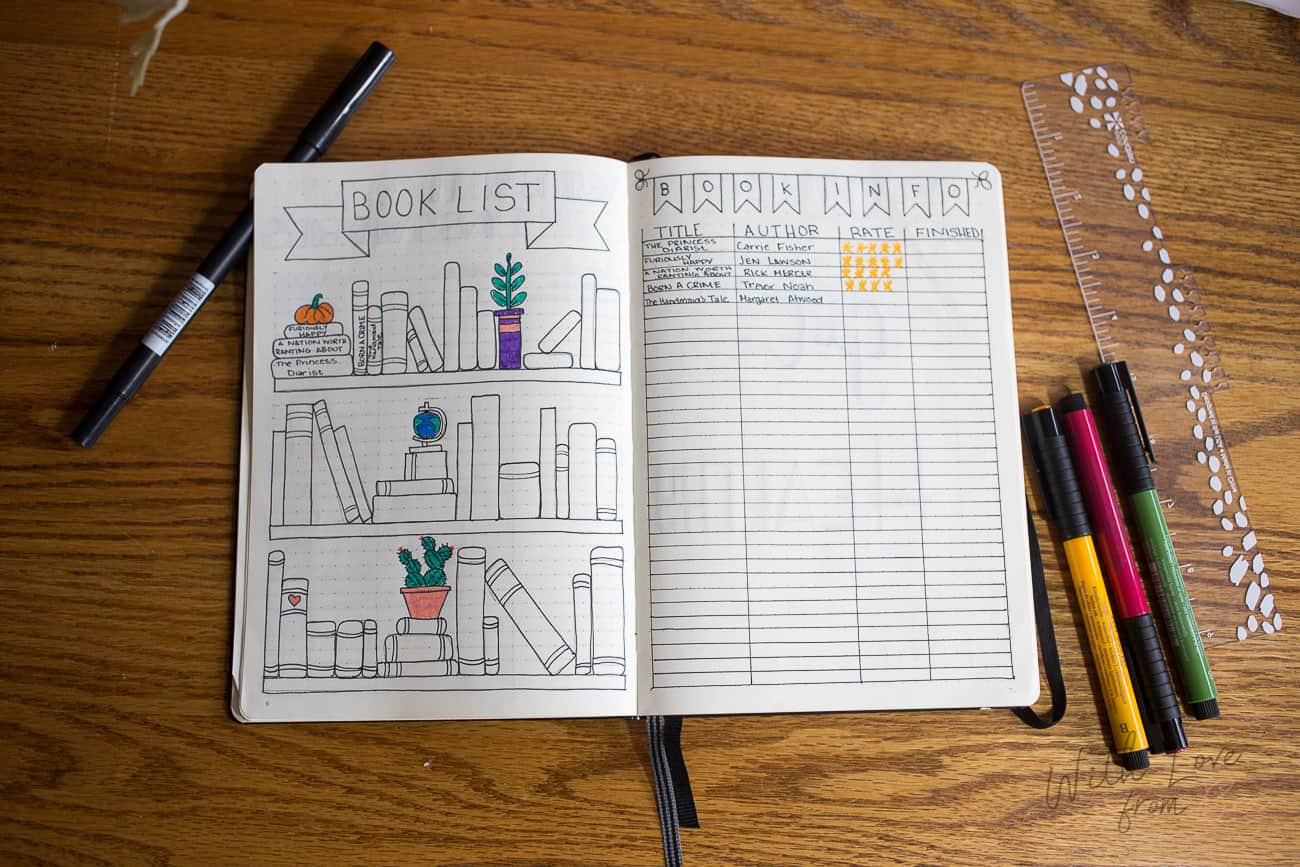 BOOK LIST
FURIOUSLY
HAPPY
A NATION WORTH
RANTING ABOUT
The Princess
Diarist
BORN A CRIME
The Handmaid's Tale
BOOK INFO
TITLE AUTHOR RATE FINISHED
THE PRINCESS
DIARIST Carrie Fisher
FURIOUSLY
HAPPY JEN LAWSON
A NATION WORTH
RANTING ABOUT RICK MERCER
BORN A CRIME Trevor Noah
The Handmaid's Tale Margaret Atwood
6
7
With Love
from